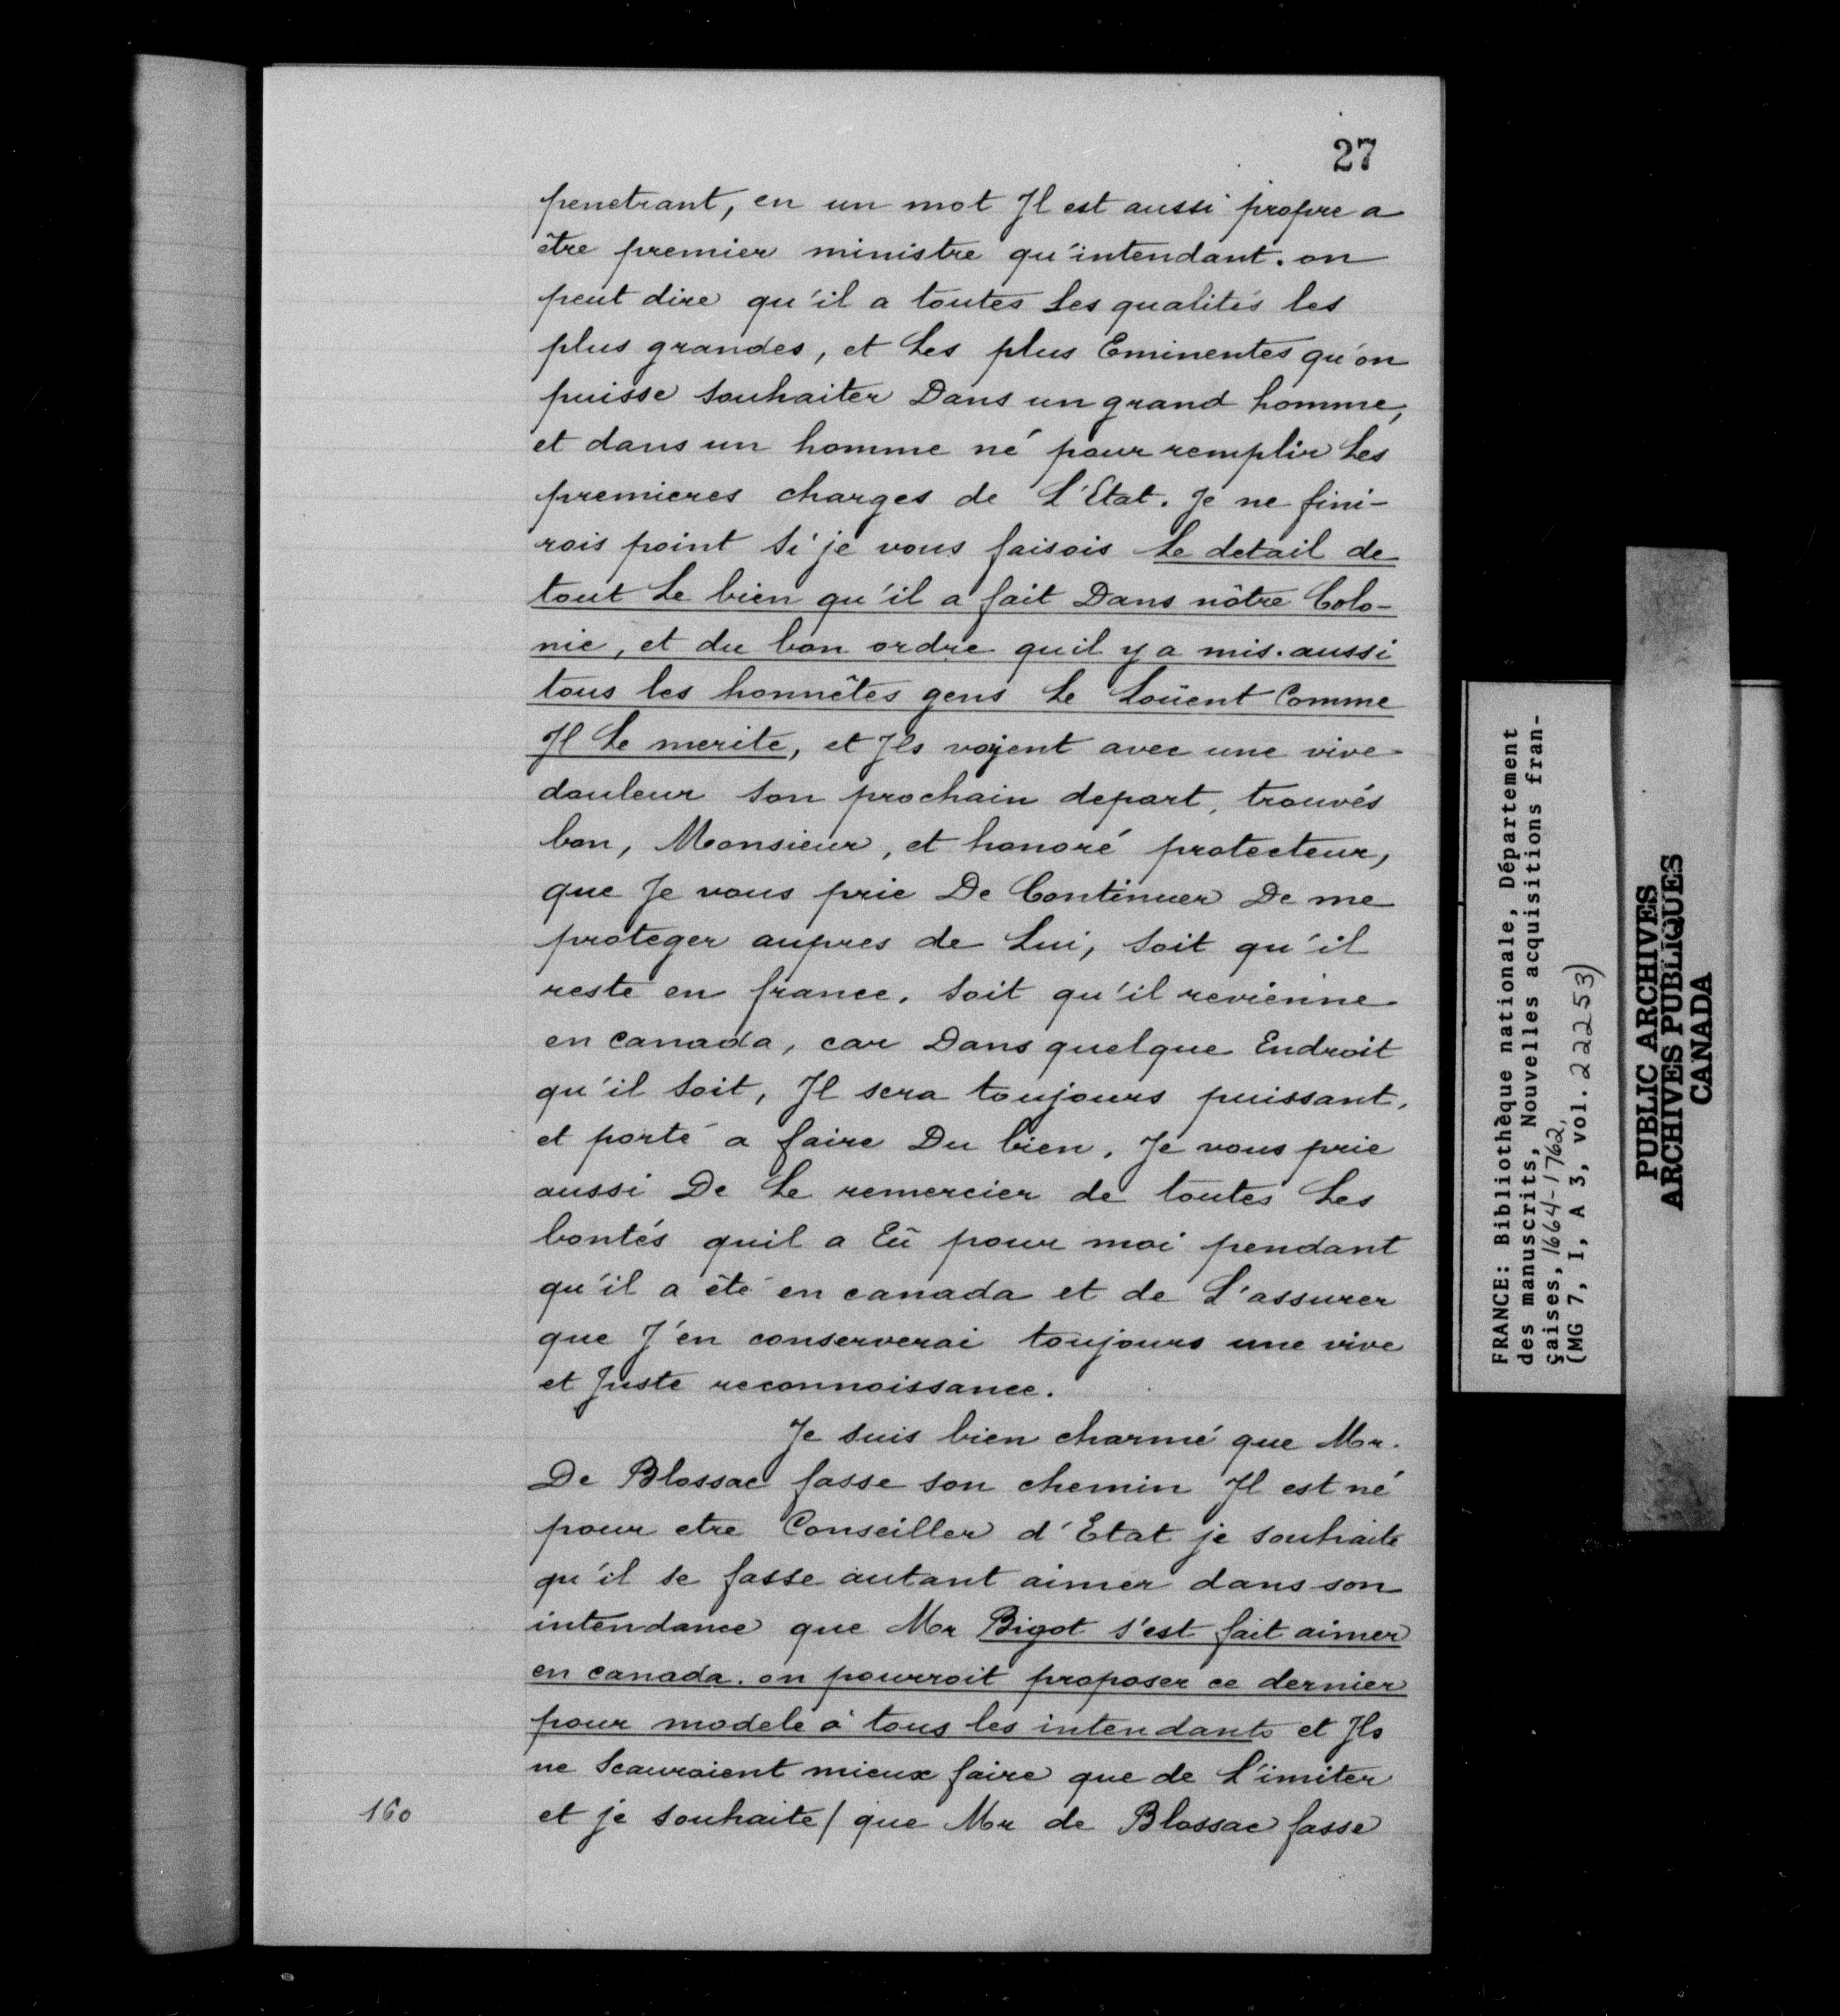 27
penetrant, en un mot Il est aussi propre a
être premier ministre qu'intendant. on
peut dire qu'il a toutes Les qualités les
plus grandes, et Les plus Eminentes qu'on
puisse souhaiter Dans un grand homme,
et dans un homme né pour remplir Les
premieres charges de L'Etat. Je ne fini-
rois point si je vous faisois Le detail de
tout Le bien qu'il a fait Dans nôtre Colo-
nie, et du bon ordre quil y a mis. aussi
tous les honnêtes gens Le Loüent Comme
Il Le merite, et Ils voyent avec une vive
douleur son prochain depart, trouvés
bon, Monsieur, et honoré protecteur,
que Je vous prie De Continuer De me
proteger aupres de Lui, soit qu'il
reste en france. soit qu'il revienne
en canada, car Dans quelque Endroit
qu'il soit, Il sera toujours puissant,
et porté a faire Du bien. Je vous prie
aussi De Le remercier de toutes Les
bontés quil a Eû pour moi pendant
qu'il a été en canada et de L'assurer
que J'en conserverai toujours une vive
et Juste reconnoissance.
Je suis bien charmé que Mr.
De Blossac fasse son chemin Il est né
pour etre Conseiller d'Etat je souhaite
qu'il se fasse autant aimer dans son
intendance que Mr Bigot s'est fait aimer
en canada. on pourroit proposer ce dernier
pour modele à tous les intendants et Ils
ne scauraient mieux faire que de L'imiter
160 et je souhaite / que Mr de Blossac fasse
FRANCE: Bibliothèque nationale, Département
des manuscrits, Nouvelles acquisitions fran-
çaises, 1664-1762,
(MG 7, I, A 3, vol. 22253)
PUBLIC ARCHIVES
ARCHIVES PUBLIQUES
CANADA